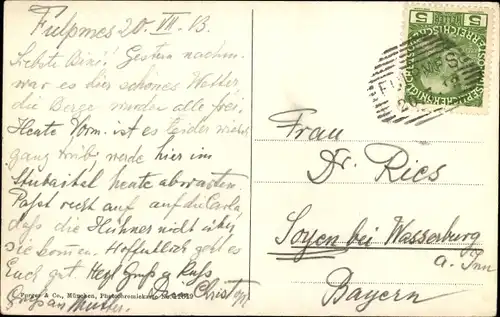 Fulpmes 20. VII. 13.
Liebste Bini! Gestern nachm.
war es hier schönes Wetter,
die Berge wurden alle frei.
Heute Vorm. ist es leider wieder
ganz trüb, werde hier im
Stubaital heute abwarten.
Passt recht auf auf die Carla,
daß die Hühner nicht über
sie kommen. Hoffentlich geht es
Euch gut. Herzl. Gruß u. Kuss
Gruß an Mutter. Christoph
Purger & Co., München, Photochromiekarte No.
5 5
FULPMES
Frau
Dr. Ries
Soyen bei Wasserburg
a. Inn
Bayern